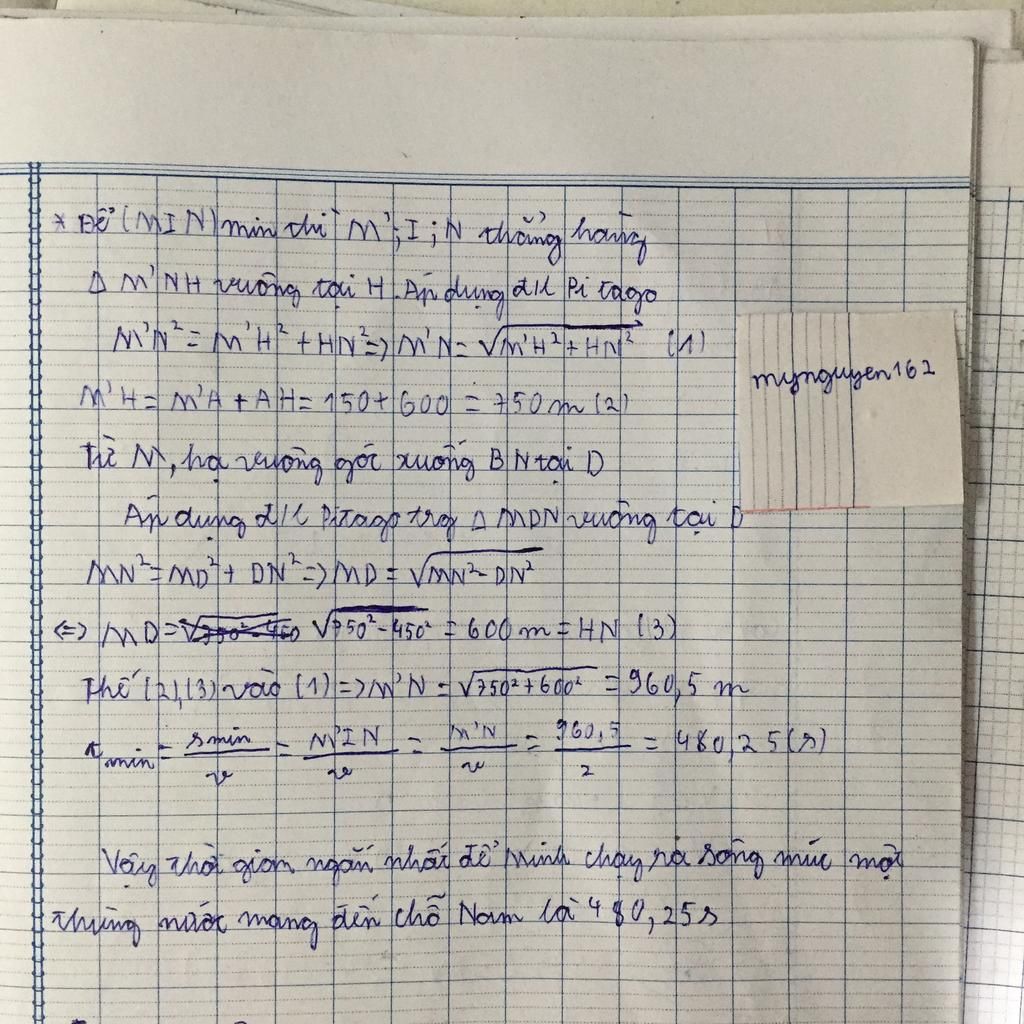 * Để (MIN)min thì M';I;N thẳng hàng
Δ M'NH vuông tại H. Áp dụng đ/l Pitago
M'N² = M'H² + HN² => M'N = √(M'H² + HN²) (1)
M'H = M'A + AH = 150 + 600 = 750 m (2)
mynguyen162
Từ M, hạ vuông góc xuống BN tại D
Áp dụng đ/l Pitago trg Δ MDN vuông tại D
MN² = MD² + DN² => MD = √(MN² - DN²)
<=> MD = √(750² - 450²) = 600 m = HN (3)
Thế (2),(3) vào (1) => M'N = √(750² + 600²) = 960,5 m
t min = smin/v = M'IN/v = M'N/v = 960,5/2 = 480,25(s)
Vậy thời gian ngắn nhất để Minh chạy ra sông múc một
thùng nước mang đến chỗ Nam là 480,25s